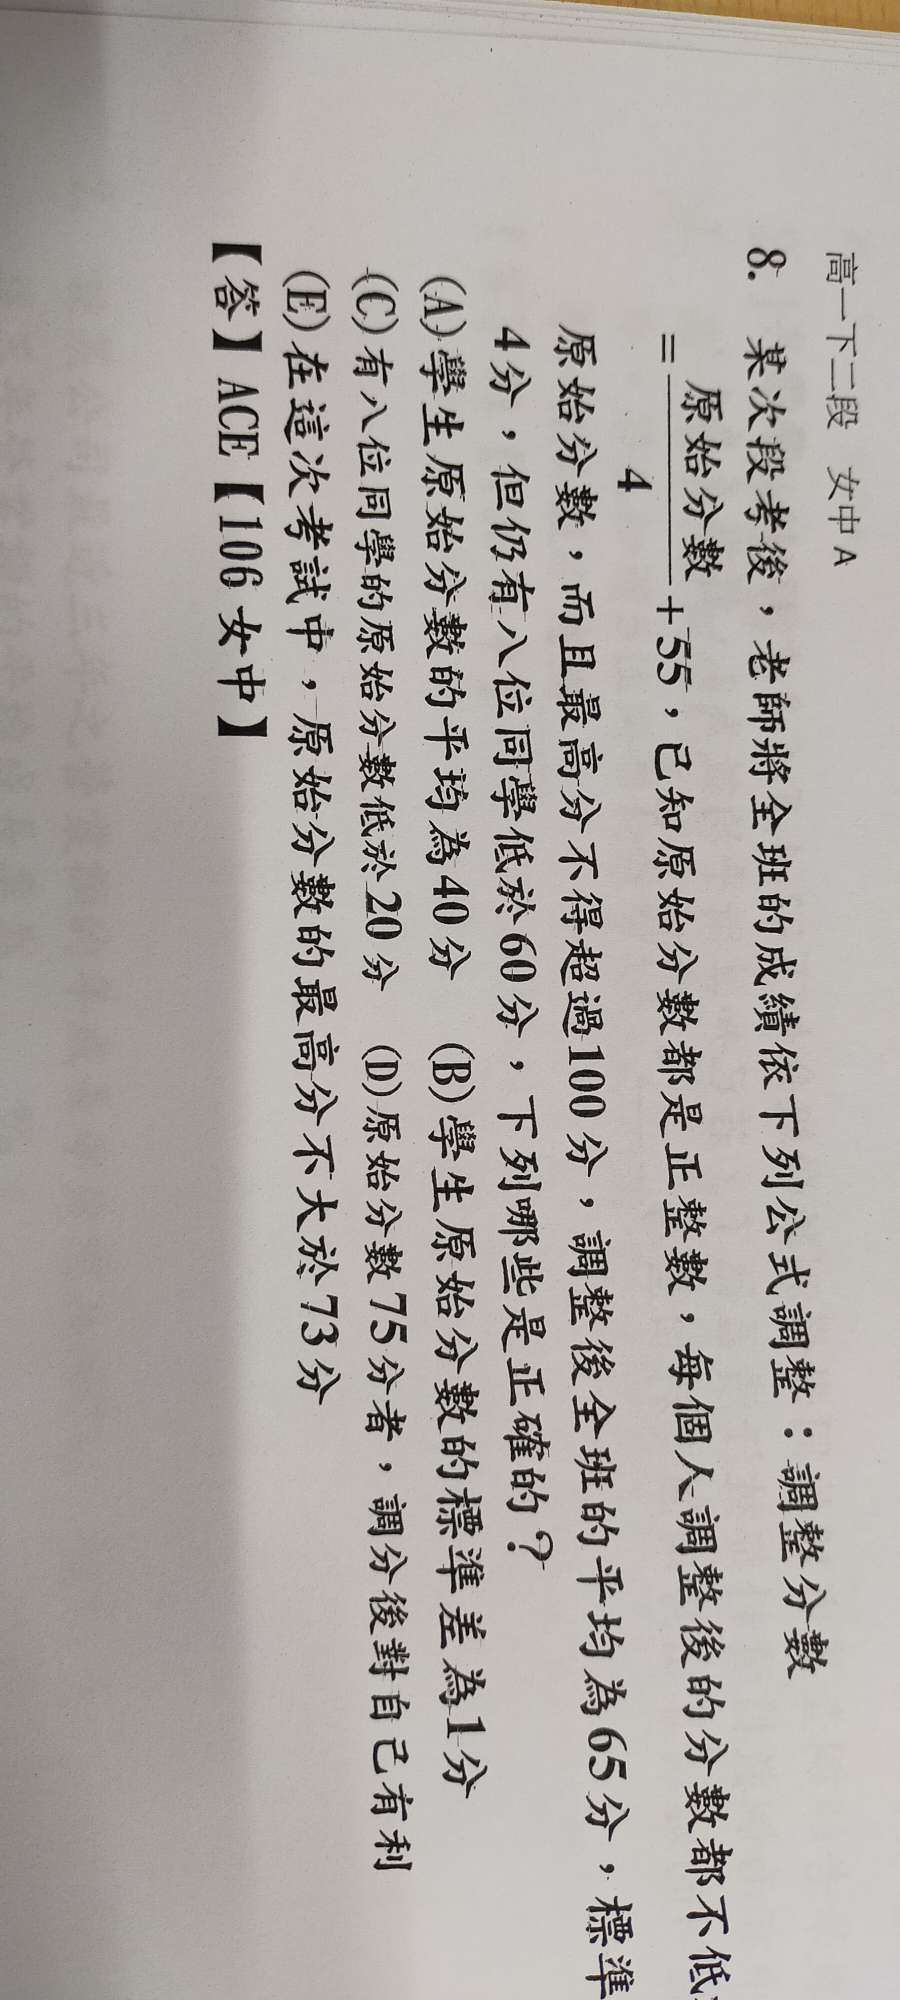 高一下二段 女中A
8. 某次段考後，老師將全班的成績依下列公式調整：調整分數
=原始分數/4+55，已知原始分數都是正整數，每個人調整後的分數都不低
原始分數，而且最高分不得超過100分，調整後全班的平均為65分，標準
4分，但仍有八位同學低於60分，下列哪些是正確的？
(A)學生原始分數的平均為40分 (B)學生原始分數的標準差為1分
(C)有八位同學的原始分數低於20分 (D)原始分數75分者，調分後對自己有利
(E)在這次考試中，原始分數的最高分不大於73分
【答】ACE【106女中】